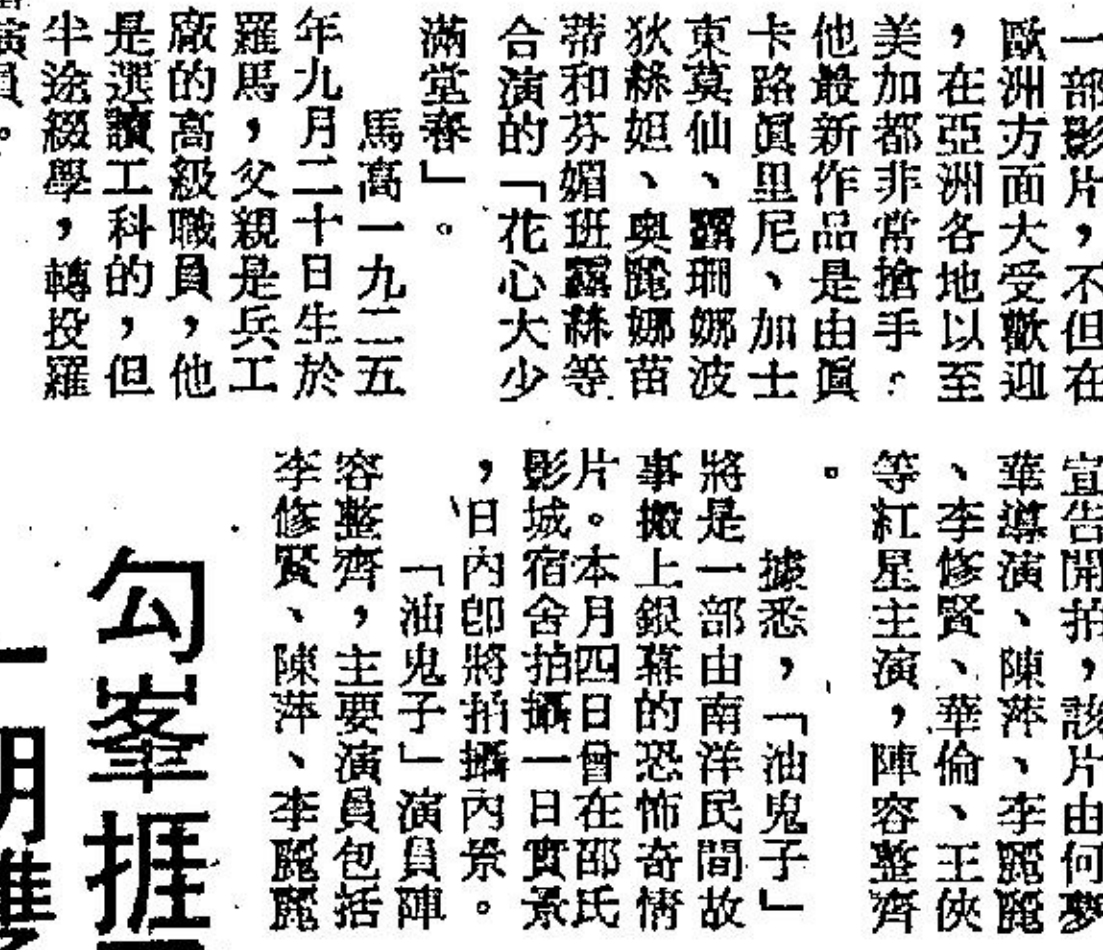 一部影片，不但在
歐洲方面大受歡迎
，在亞洲各地以至
美加都非常搶手，
他最新作品是由眞
卡路眞里尼、加士
東莫仙、露珊娜波
狄絲妲、奧麗娜苗
蒂和芬媚班露絲等
合演的「花心大少
滿堂春」。
馬高一九二五
年九月二十日生於
羅馬，父親是兵工
廠的高級職員，他
是選讀工科的，但
半途綴學，轉投羅
演員。
宣告開拍，該片由何夢
華導演、陳萍、李麗麗
、李修賢、華倫、王俠
等紅星主演，陣容整齊
。
據悉，「油鬼子」
將是一部由南洋民間故
事搬上銀幕的恐怖奇情
片。本月四日曾在邵氏
影城宿舍拍攝一日實景
，日內即將拍攝內景。
「油鬼子」演員陣
容整齊，主要演員包括
李修賢、陳萍、李麗麗
勾峯捱